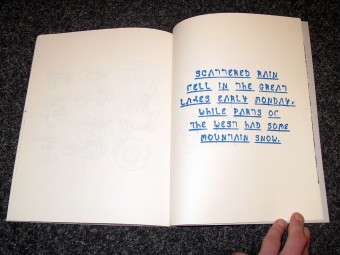 SCATTERED RAIN
FELL IN THE GREAT
LAKES EARLY MONDAY,
WHILE PARTS OF
THE WEST HAD SOME
MOUNTAIN SNOW.